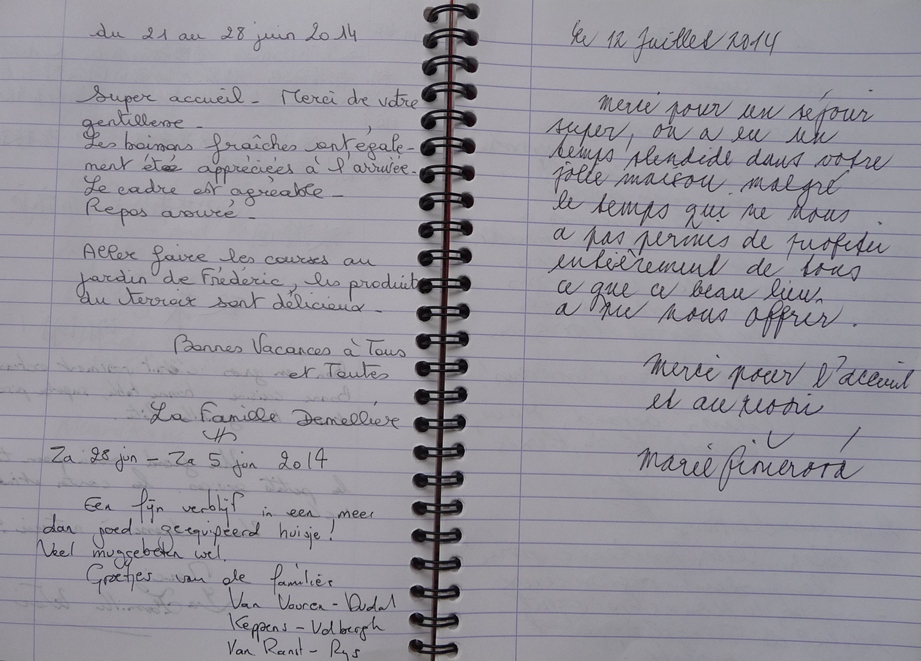 du 21 au 28 juin 2014
Super accueil - Merci de votre
gentillesse -
Les boissons fraîches sont égale-
ment été appréciées à l'arrivée.
Le cadre est agréable -
Repos assuré -
Aller faire les courses au
jardin de Frédéric, les produits
du terroir sont délicieux -
Bonnes Vacances à Tous
et Toutes
La Famille Demellière
Za 28 jun - Za 5 jun 2014
Een fijn verblijf in een meer
dan goed geequipeerd huisje!
Veel muggebeten wel.
Groetjes van de families
Van Vooren - Dudal
Keppens - Volbergh
Van Ranst - Rys
le 12 Juillet 2014
Merci pour un séjour
super, on a eu un
temps splendide dans votre
jolie maison. malgré
le temps qui ne nous
a pas permis de profiter
entièrement de tous
ce que ce beau lieu
a nous offrir.
Merci pour l'acceuil
et au revoir
Marie